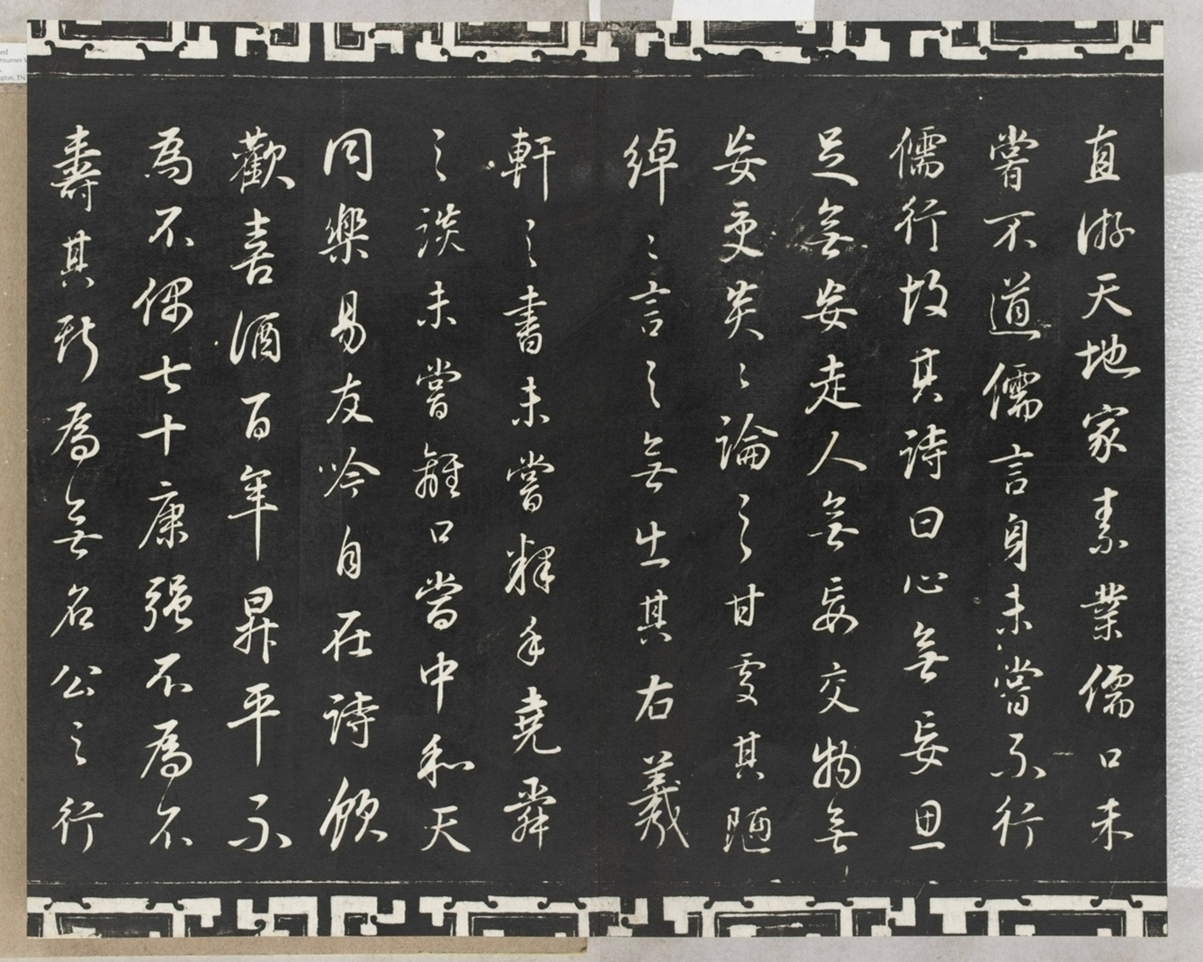 直游天地家素業儒口未
嘗不道儒言身未嘗不行
儒行故其詩曰心無妄思
足無妄走人無妄交物無
妄受炎炎論之甘處其陋
綽綽言之無出其右羲
軒之書未嘗釋手堯舜
之談未嘗離口當中和天
同樂易友吟自在詩飲
歡喜酒百年昇平不
為不偶七十康强不為不
壽其斯為無名公之行